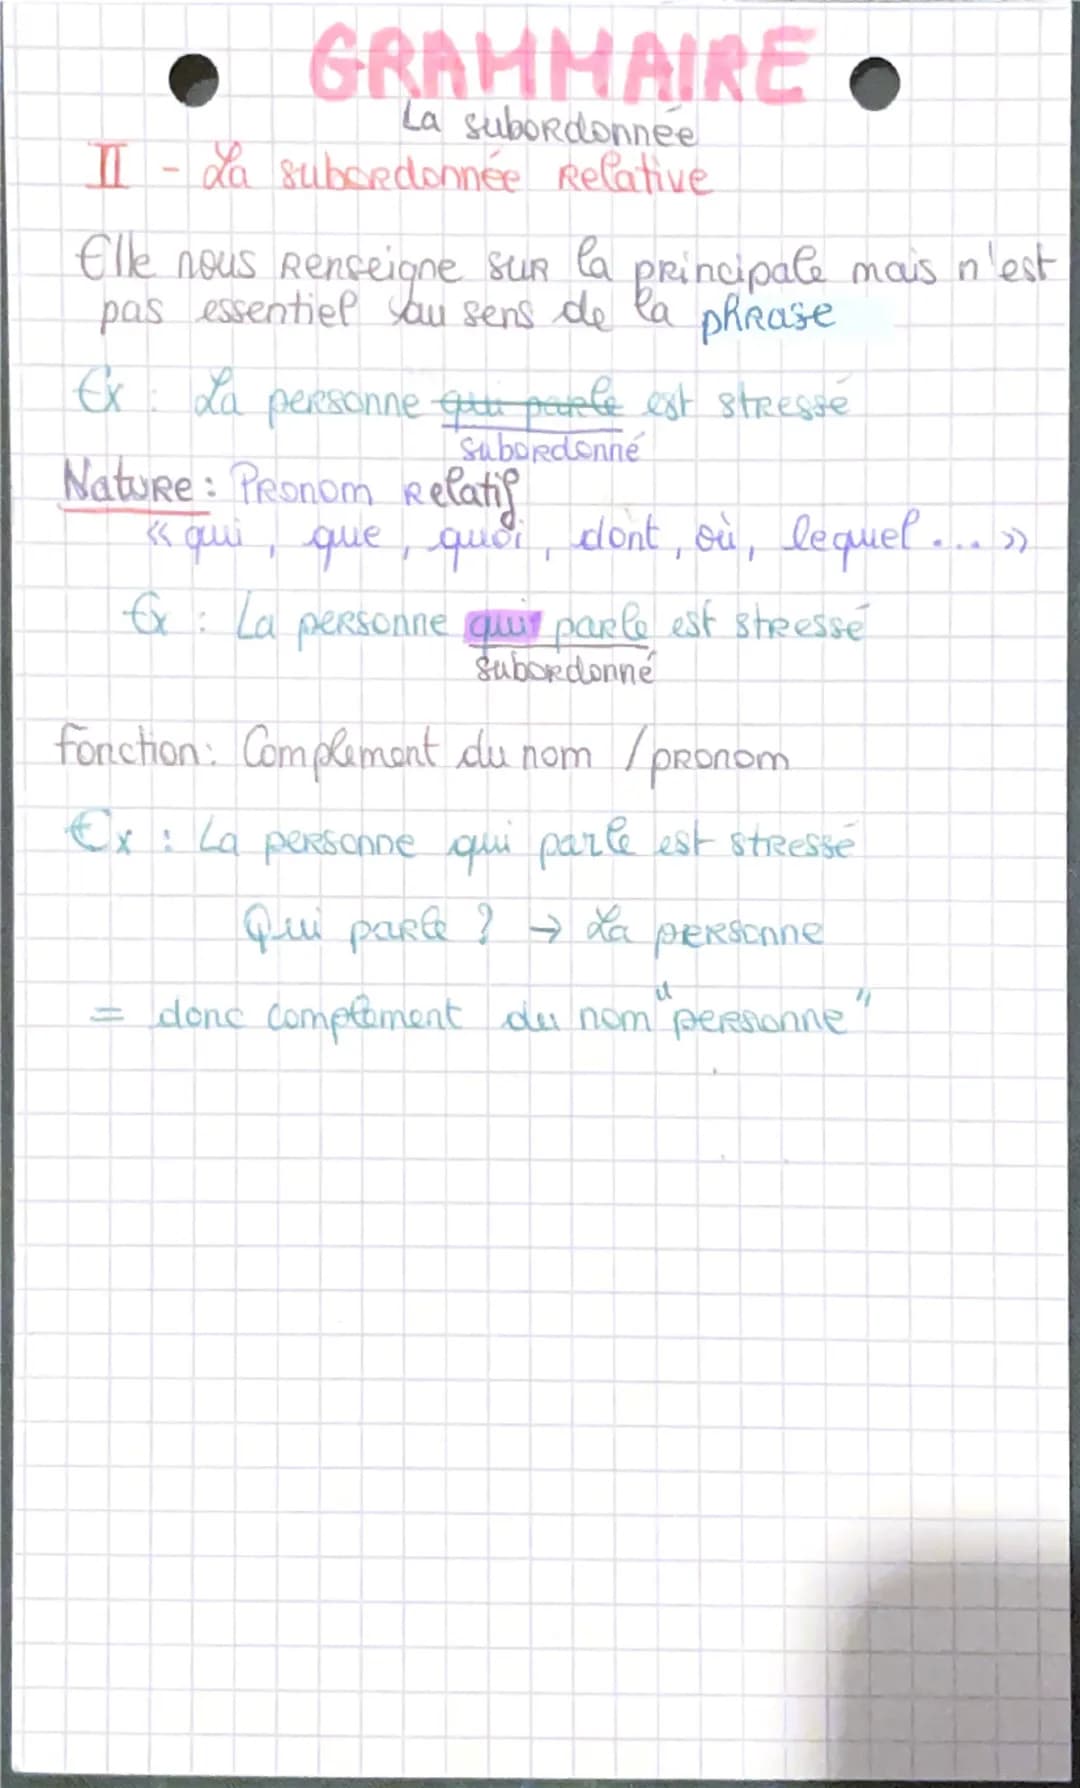 GRAMMAIRE
La subordonnée
II - La subordonnée Relative
Elle nous Renseigne sur la principale mais n'est
pas essentiel au sens de la phrase
Ex : La personne qui parle est stressé
subordonné
Nature : Pronom Relatif
« qui, que, quoi, dont, où, lequel ... »
Ex : La personne qui parle est stressé
subordonné
Fonction: Complement du nom / pronom
Ex : La personne qui parle est stressé
Qui parle ? → La personne
= donc complément du nom "personne"